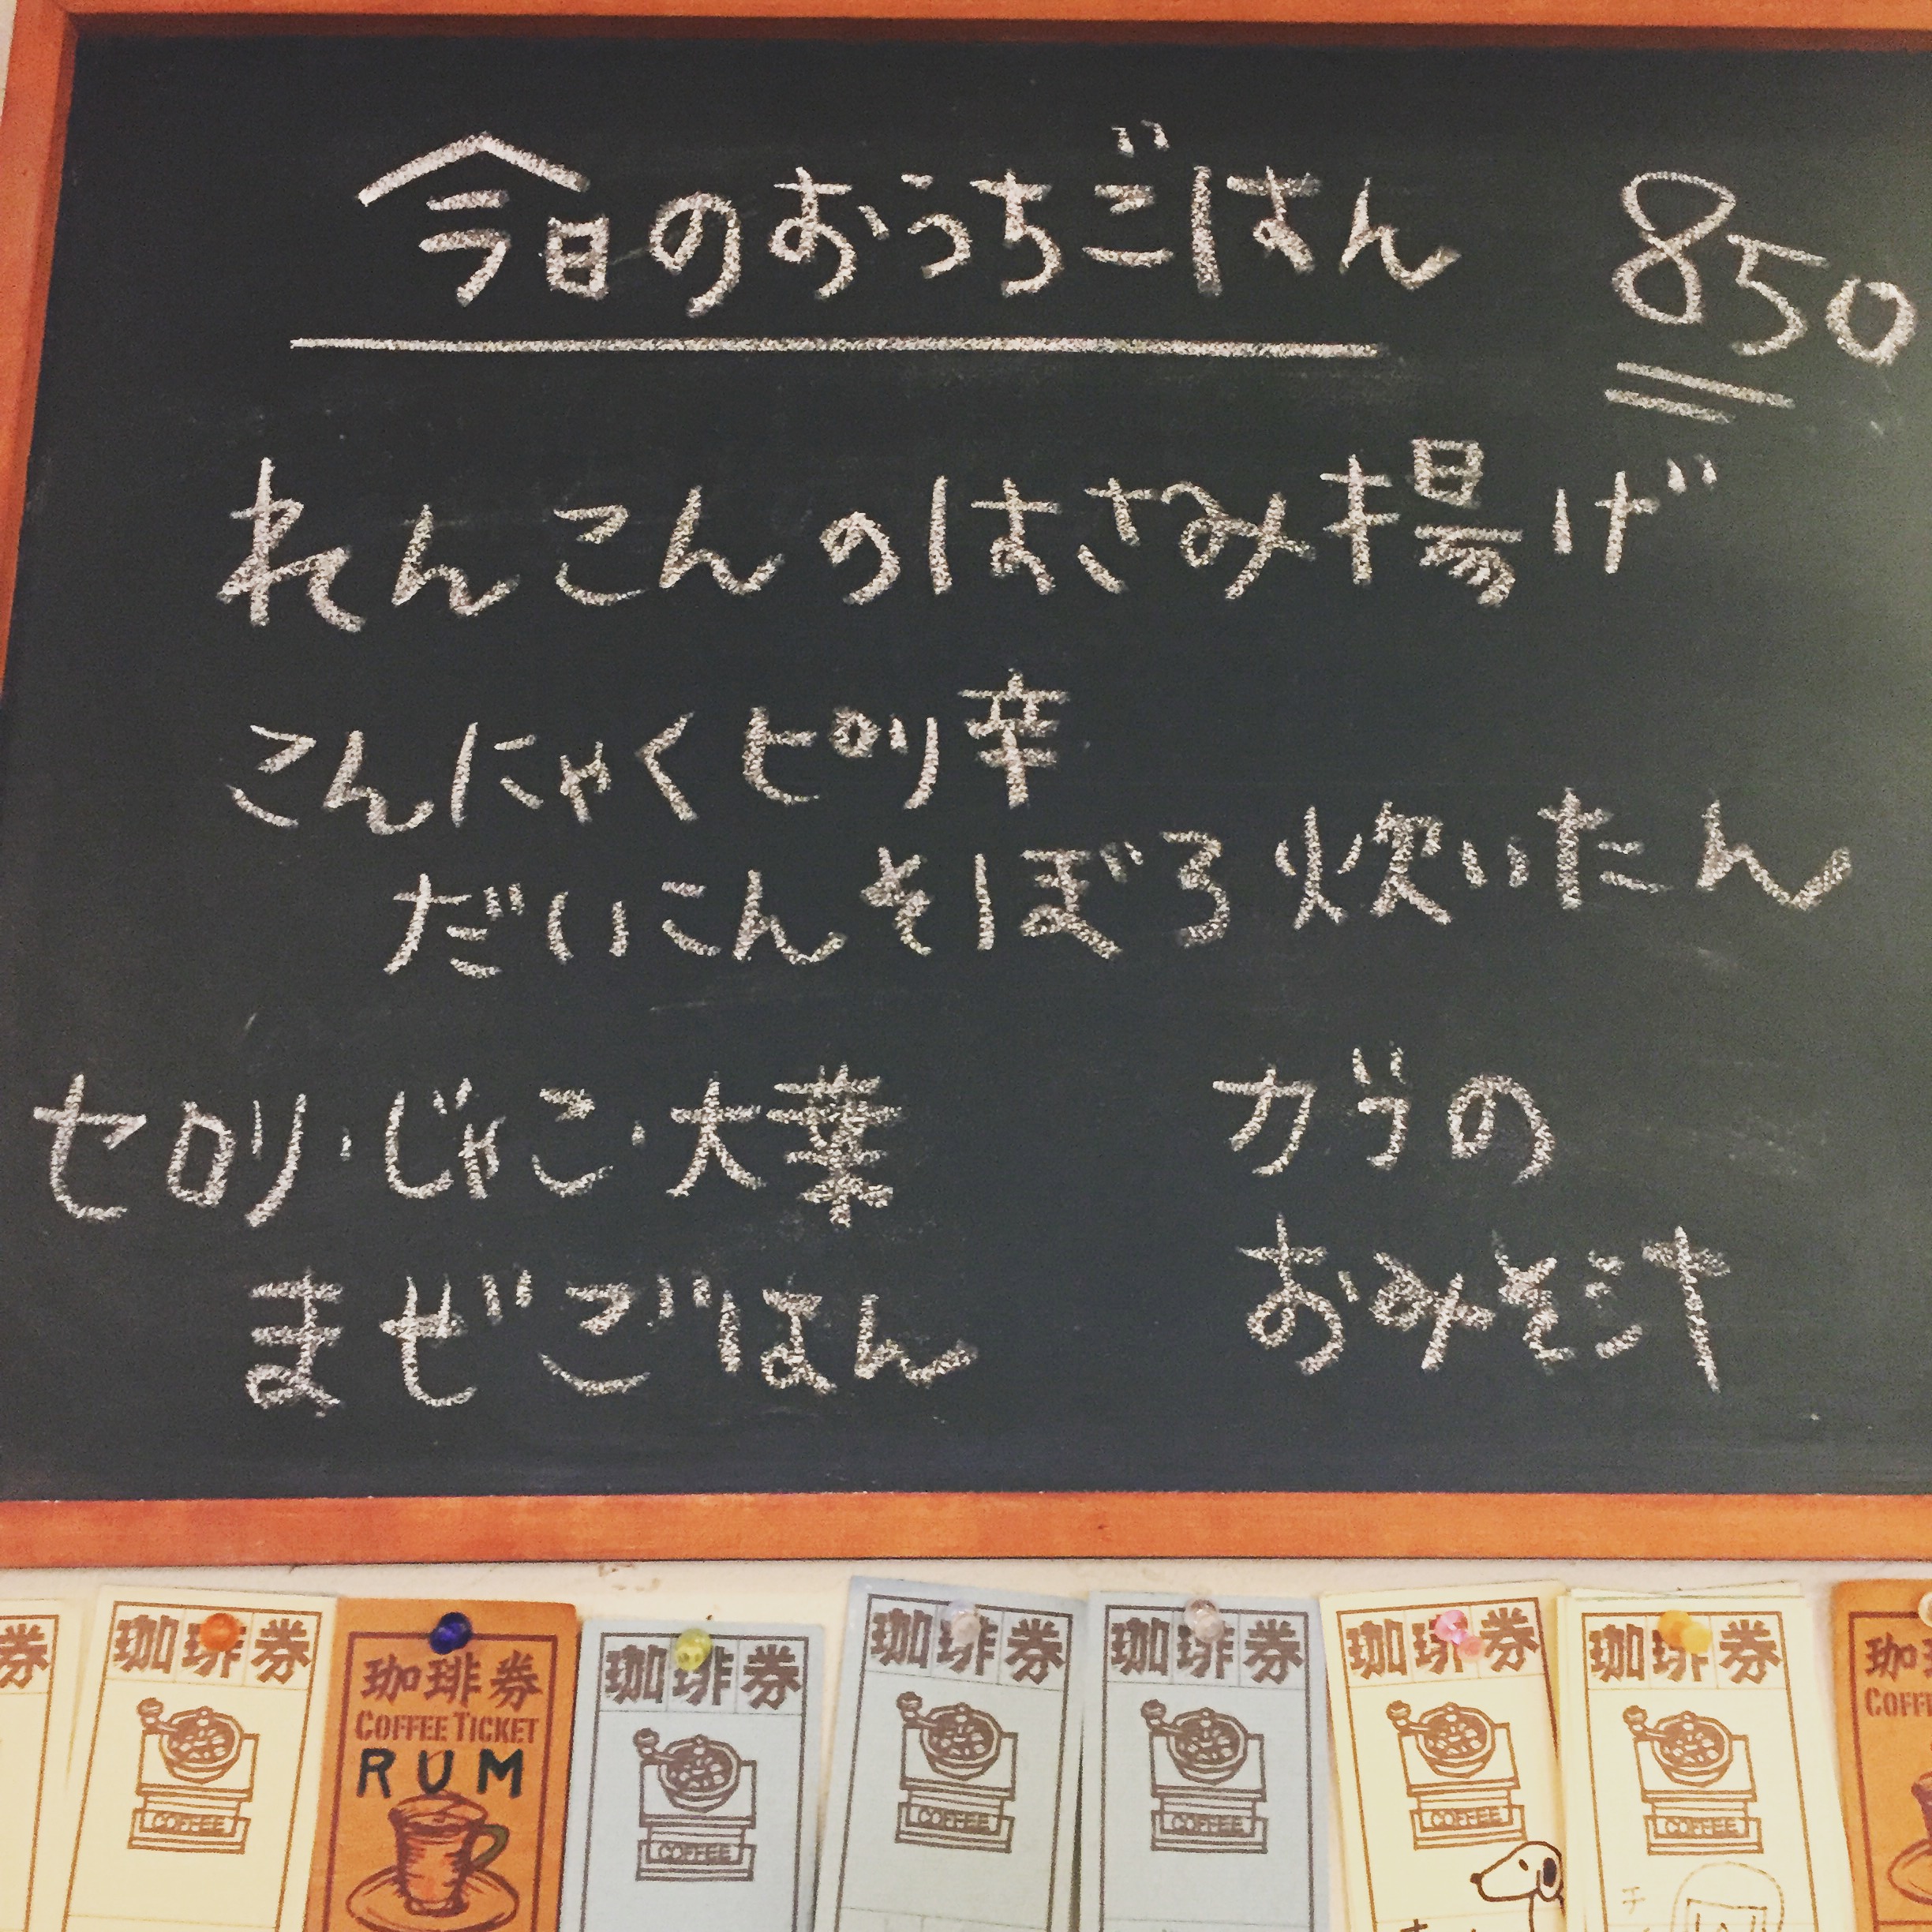 今日のおうちごはん 850
れんこんのはさみ揚げ
こんにゃくピリ辛
だいこんそぼろ炊いたん
セロリ・じゃこ・大葉
まぜごはん
カブの
おみそ汁
券
珈琲券
COFFEE
珈琲券
COFFEE TICKET
RUM
珈琲券
COFFEE
珈琲券
COFFEE
珈琲券
COFFEE
珈琲券
COFFEE
珈琲券
COFFEE
珈
COFFE